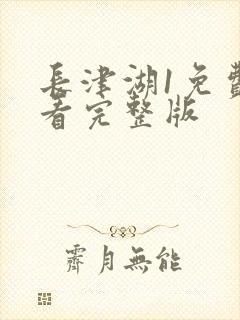 長津湖1免費
看完整版
霽月無能